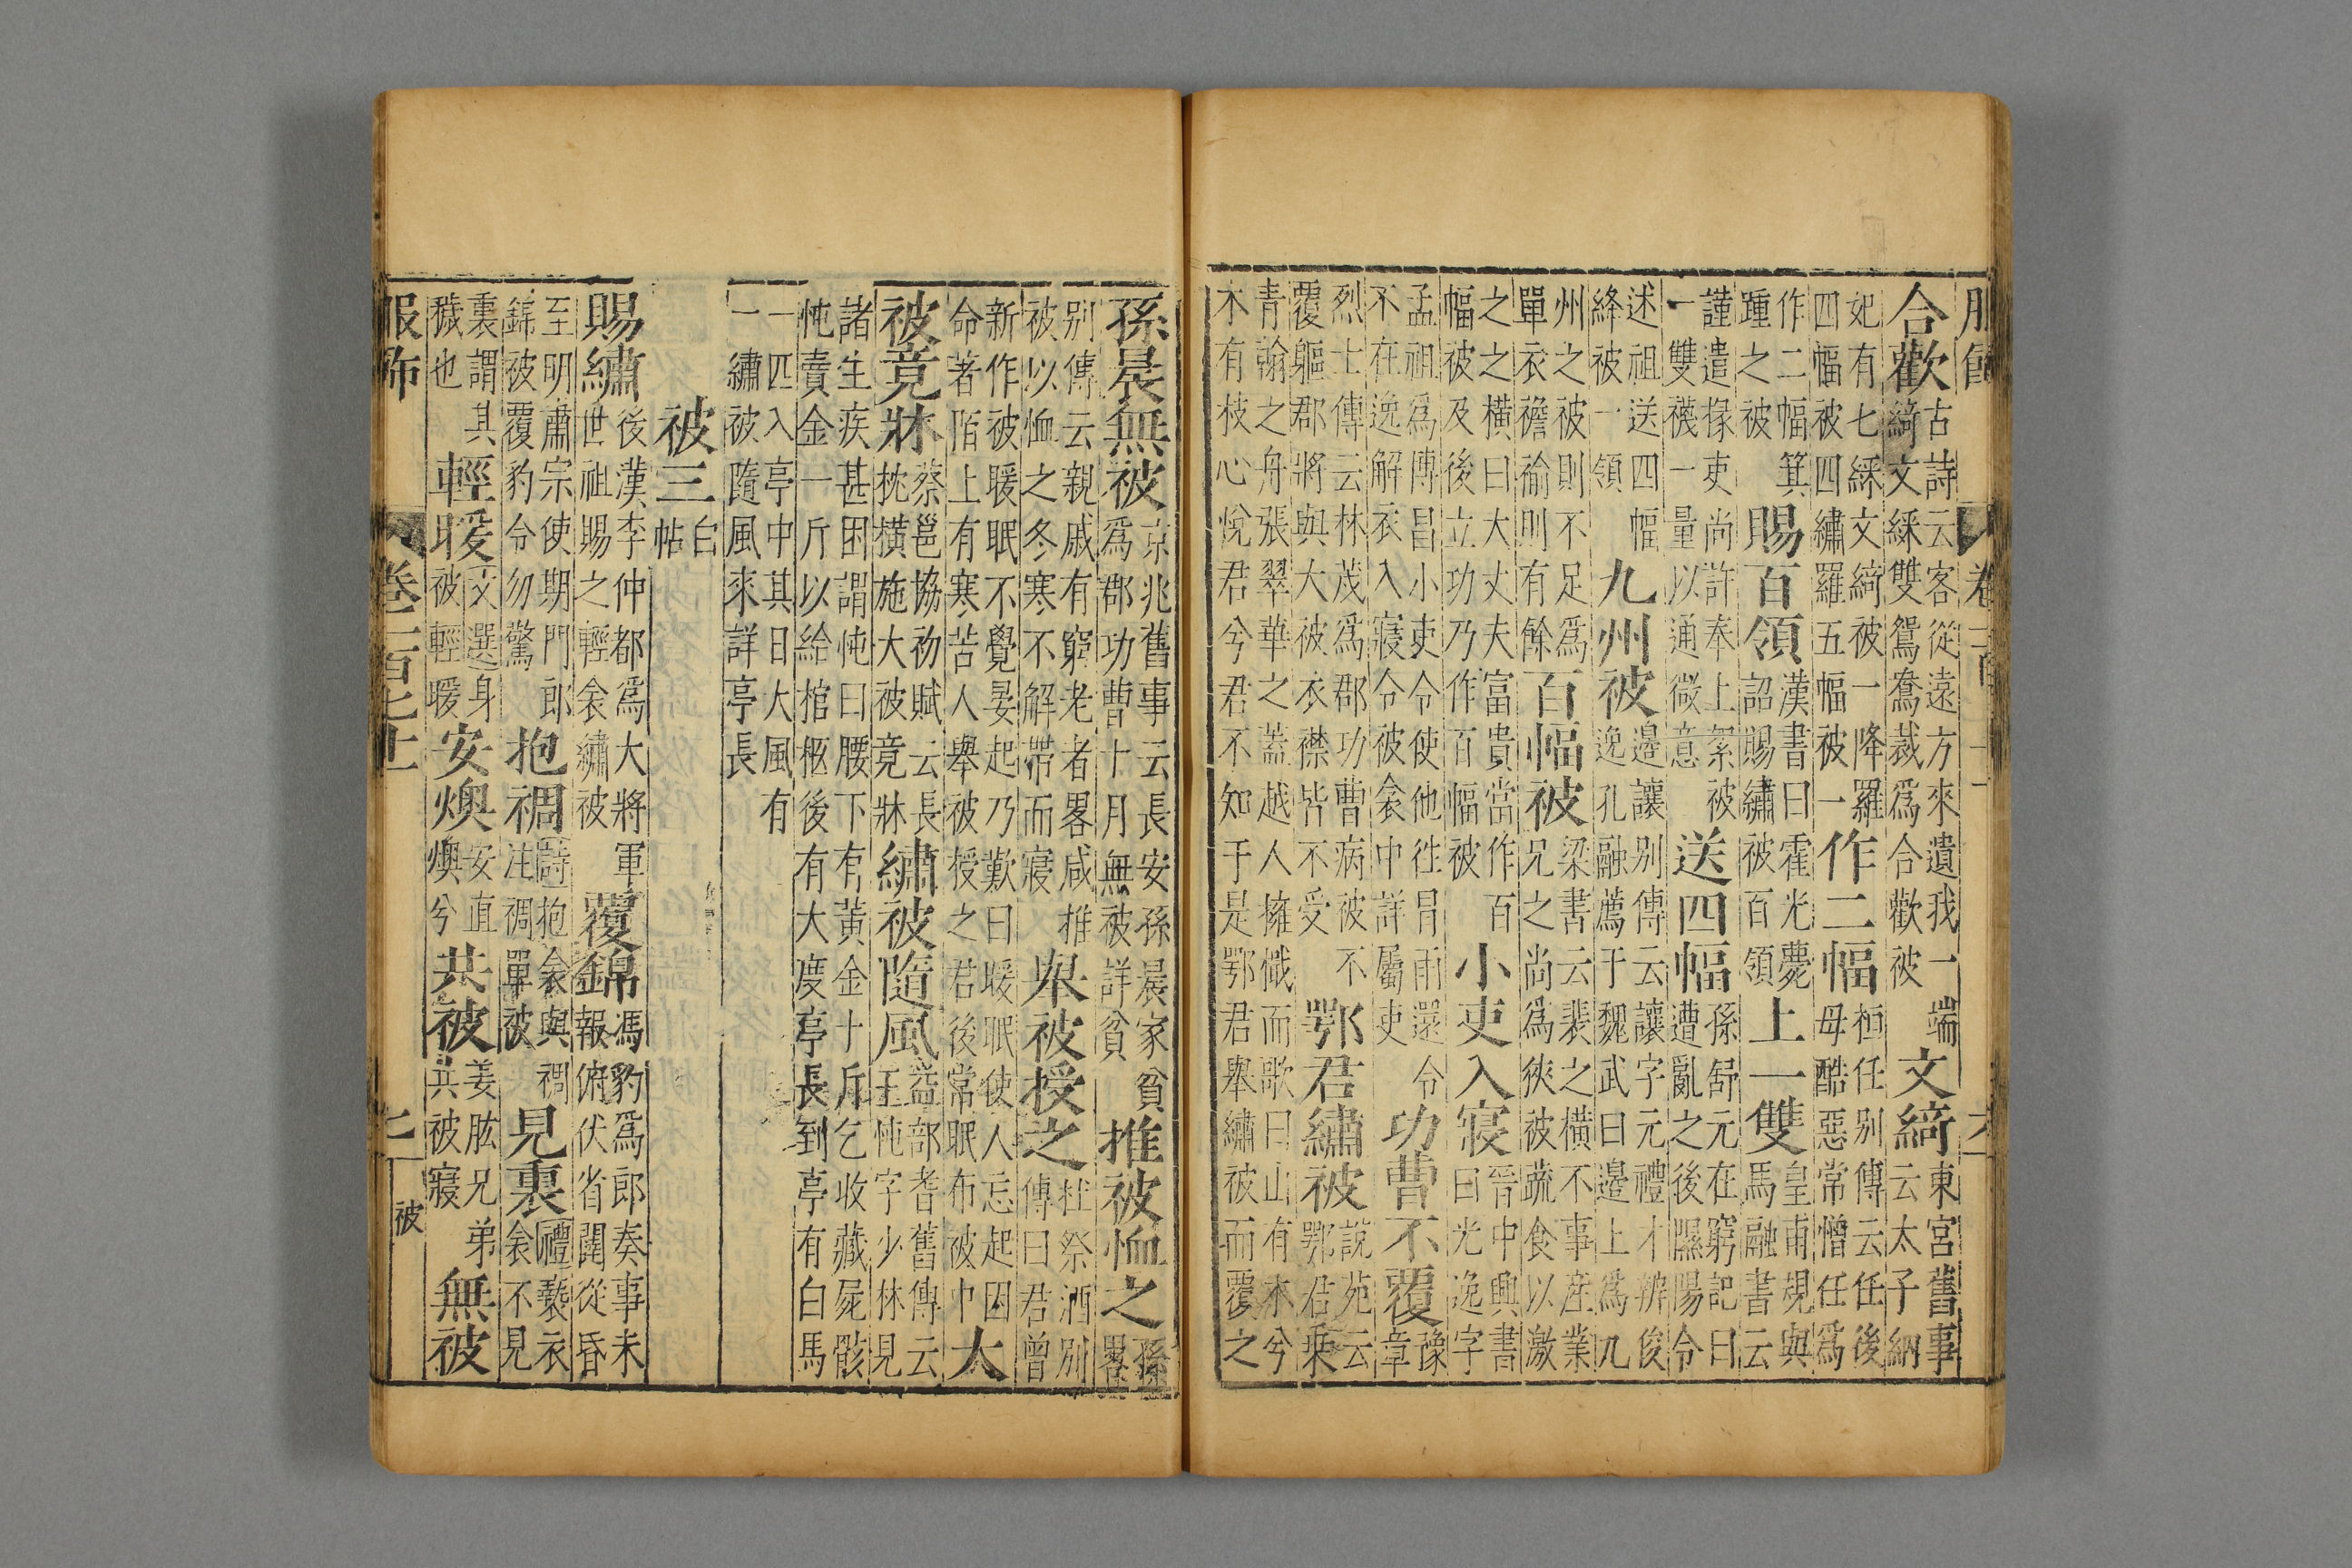 服飾 卷三百
合歡 古詩云客從遠方來遺我一端綺文綵雙鴛鴦裁爲合歡被 文綺 東宮舊事云太子納
妃有七綵文綺被一降羅四幅被四繡羅五幅被一 作二幅 桓任别傳云任後母酷惡常憎任爲
作二幅箕踵之被 賜百領 漢書曰霍光薨詔賜繡被百領 上一雙 皇甫規與馬融書云
謹遣掾吏尚許奉上絮被一雙襪一量以通微意 送四幅 孫舒元在窮記曰遭亂之後隰陽令
述祖送四幅絳被一領 九州被 邊讓别傳云讓字元禮才辨俊逸孔融薦于魏武曰邊上爲九
州之被則不足爲單衣襜褕則有餘 百幅被 梁書云裴之橫不事產業兄之尚爲狹被蔬食以激
之之橫曰大丈夫富貴當作百幅被及後立功乃作百幅被 小吏入寢 晉中興書曰光逸字
孟祖爲傳昌小吏令使他徃冐雨還令不在逸解衣入寢令被衾中詳屬吏 功曹不覆 豫章
烈士傳云林茂爲郡功曹病被不覆軀郡將與大被衣襟皆不受 鄂君繡被 說苑云鄂君乘
青翰之舟張翠華之蓋越人擁檝而歌曰山有木兮木有枝心悅君兮君不知于是鄂君舉繡被而覆之
孫晨無被 京兆舊事云長安孫晨家貧爲郡功曹十月無被詳貧 推被恤之 孫畧
别傳云親戚有窮老者畧咸推被以恤之冬寒不解帶而寢 舉被授之 杜祭酒別傳曰君曾
新作被暖眠不覺晏起乃歎曰暖眠使人忘起因命著陌上有寒苦人舉被授之君後常眠布被巾 大
被竟牀 蔡邕協初賦云長枕橫施大被竟牀 繡被隨風 益部耆舊傳云王忳字少林見
諸生疾甚困謂忳曰腰下有黃金十斤乞收藏屍骸忳賣金一斤以給棺柩後有大度亭長到亭有白馬
一匹入亭中其日大風有一繡被隨風來詳亭長
被三 白帖
賜繡 後漢李仲都爲大將軍世祖賜之輕衾繡被 覆錦 馮豹爲郎奏事未報俯伏省閣從昏
至明肅宗使期門郎錦被覆豹令勿驚 抱裯 詩抱衾與裯注裯單被 見裏 禮褻衣衾不見
裏謂其穢也 輕暖 文選身被輕暖 安燠 安且燠兮 共被 姜肱兄弟共被寢 無被
服飾 卷三百七十 七 被